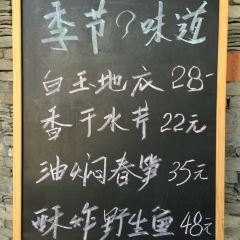 季节の味道
白玉地衣 28-
香干水芹 22元
油焖春笋 35元
酥炸野生鱼 48元